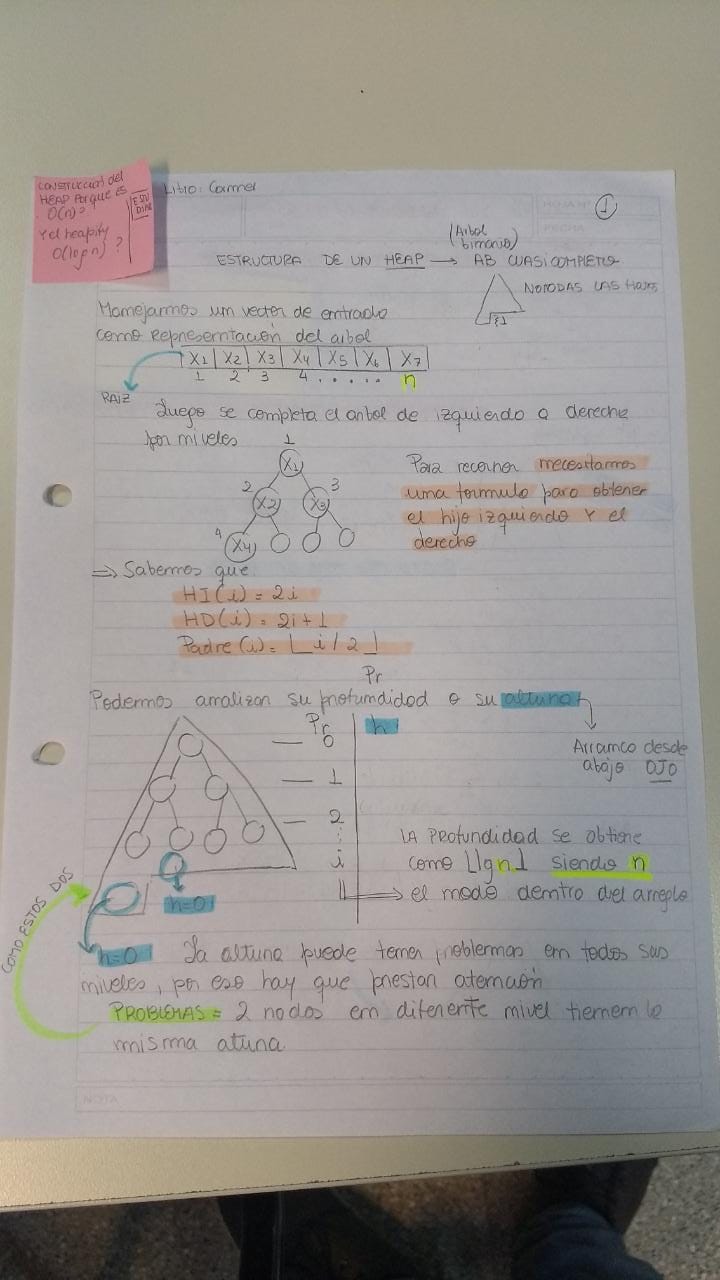 CONSTRUCCIÓN del
HEAP Porque es
O(n)?
Y el heapify
O(log n) ?
ESTU
DIAR
Libro: Carmel
1
(Arbol
binario)
ESTRUCTURA DE UN HEAP → AB CUASICOMPLETO
NO TODAS LAS HOJAS
Manejarmos un vector de entrada
como representación del arbol
X1 X2 X3 X4 X5 X6 X7
1 2 3 4 . . . . . n
RAIZ
Luego se completa el arbol de izquierda a derecha
por niveles
1
X1
2 3
X2 X3
4
X4
Para recorrer necesitamos
una formula para obtener
el hijo izquierdo Y el
derecho
⇒ Sabemos que
HI(i) = 2i
HD(i) = 2i+1
Padre(i) = ⌊i/2⌋
Pr
Podemos analizar su profundidad o su altura
Pr h
— 0
— 1
— 2
⋮
i
Arranco desde
abajo OJO
LA PROFUNDIDAD se obtiene
como ⌊lg n⌋ siendo n
⇒ el nodo dentro del arreglo
h=0
COMO ESTOS DOS
h=0 La altura puede tener problemas en todos sus
niveles, por eso hay que prestar atención
PROBLEMAS = 2 nodos en diferente nivel tienen la
misma atura
NOTA